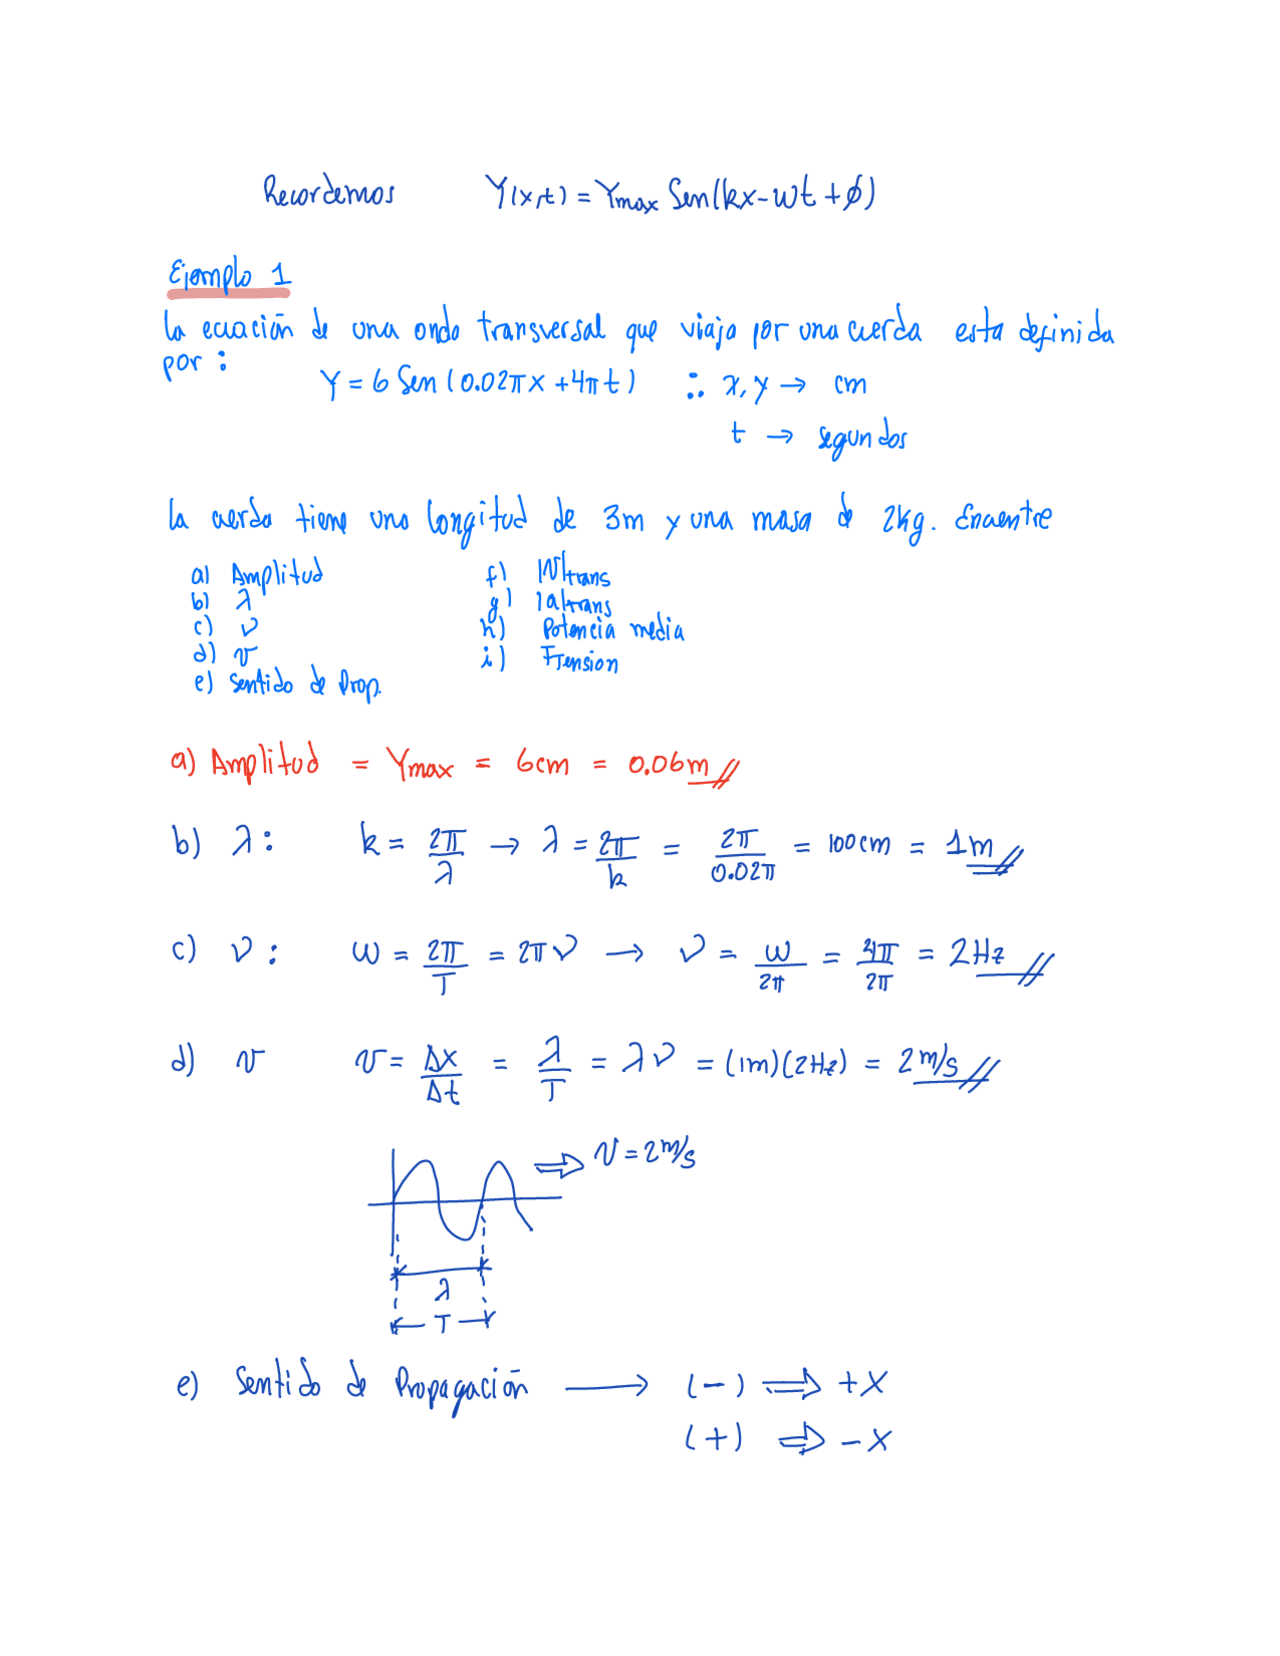 Recordemos Y(x,t) = Ymax Sen(kx-wt+ϕ)
Ejemplo 1
La ecuación de una onda transversal que viaja por una cuerda esta definida
por :
Y = 6 Sen (0.02πx + 4πt) ∴ x, y → cm
t → segundos
La cuerda tiene una longitud de 3m y una masa de 2kg. Encuentre
a) Amplitud
b) λ
c) ν
d) v
e) Sentido de Prop.
f) |v|trans
g) |a|trans
h) Potencia media
i) FTension
a) Amplitud = Ymax = 6cm = 0.06m
b) λ : k = 2π/λ → λ = 2π/k = 2π/0.02π = 100cm = 1m
c) ν : w = 2π/T = 2πν → ν = w/2π = 4π/2π = 2Hz
d) v v = Δx/Δt = λ/T = λν = (1m)(2Hz) = 2m/s
⇒ v = 2m/s
λ
T
e) Sentido de Propagación → (-) ⇒ +X
(+) ⇒ -X